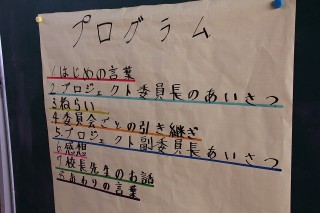 プログラム
1はじめの言葉
2プロジェクト委員長のあいさつ
3ねらい
4委員会ごとの引き継ぎ
5プロジェクト副委員長あいさつ
6感想
7校長先生のお話
8おわりの言葉